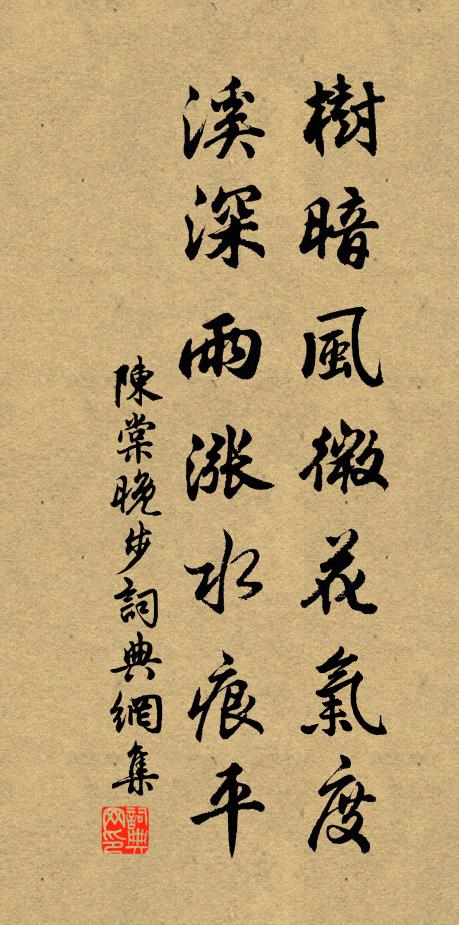 樹暗風微花氣度
溪深雨漲水痕平
陳棠晚步詞典網集
詞典网印